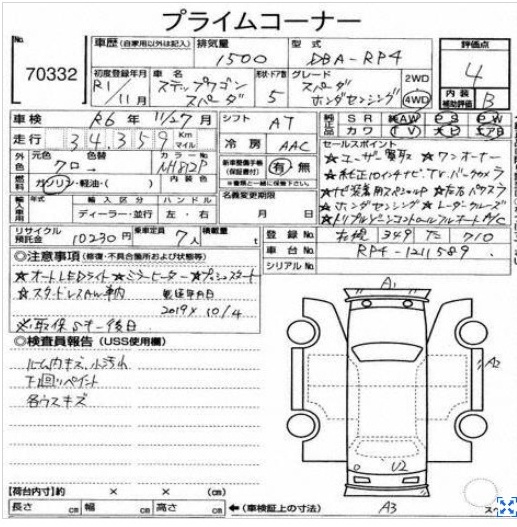 プライムコーナー
No.
70332
車歴 (自家用以外は記入)
排気量
1500
型式
DBA-RP4
評価点
4
内装
補助評価
B
初度登録年月
R1/11月
車名
ステップワゴン
スパーダ
形状・ドア数
5
グレード
スパーダ
ホンダセンシング
2WD
4WD
車検
R6年 11/27月
シフト
AT
走行
34,359
Km
マイル
冷房
AAC
純正品
SR AW PS PW
カワ TV ナビ エアB
外色
元色
クロ
色替
カラーNo
NH812P
燃料
ガソリン・軽油・( )
内装色
新車整備手帳
(保証書付)
有・無
※書類と一緒に保管下さい。
名義変更期限
月 日
輸入車用
年式
輸入区分
ディーラー・並行
ハンドル
左・右
セールスポイント
☆ユーザー買取 ☆ワンオーナー
☆純正10インチナビ、TV、バックカメラ
☆ナビ装着用スペシャルP ☆左右パワスラ
☆ホンダセンシング ☆レーダークルーズ
☆トリプルゾーンコントロールフルオートA/C
リサイクル
預託金
10230円
乗車定員
7人
積載量
t
登録No
札幌 349 た 710
車台No
RP4-1211589
シリアルNo
◎注意事項 (修復・不具合箇所および状態等)
☆オートLEDライト ☆ミラーヒーター ☆プッシュスタート
☆スタッドレスAW車内
2019 x 10/4
◎検査員報告 (USS使用欄)
ルーム内キズ、小汚れ
下回りペイント
各ウスキズ
A1
A2
U2
A3
【荷台内寸】約 × × (cm)
長さ cm 幅 cm 高さ cm
←(車検証上の寸法)
スペ